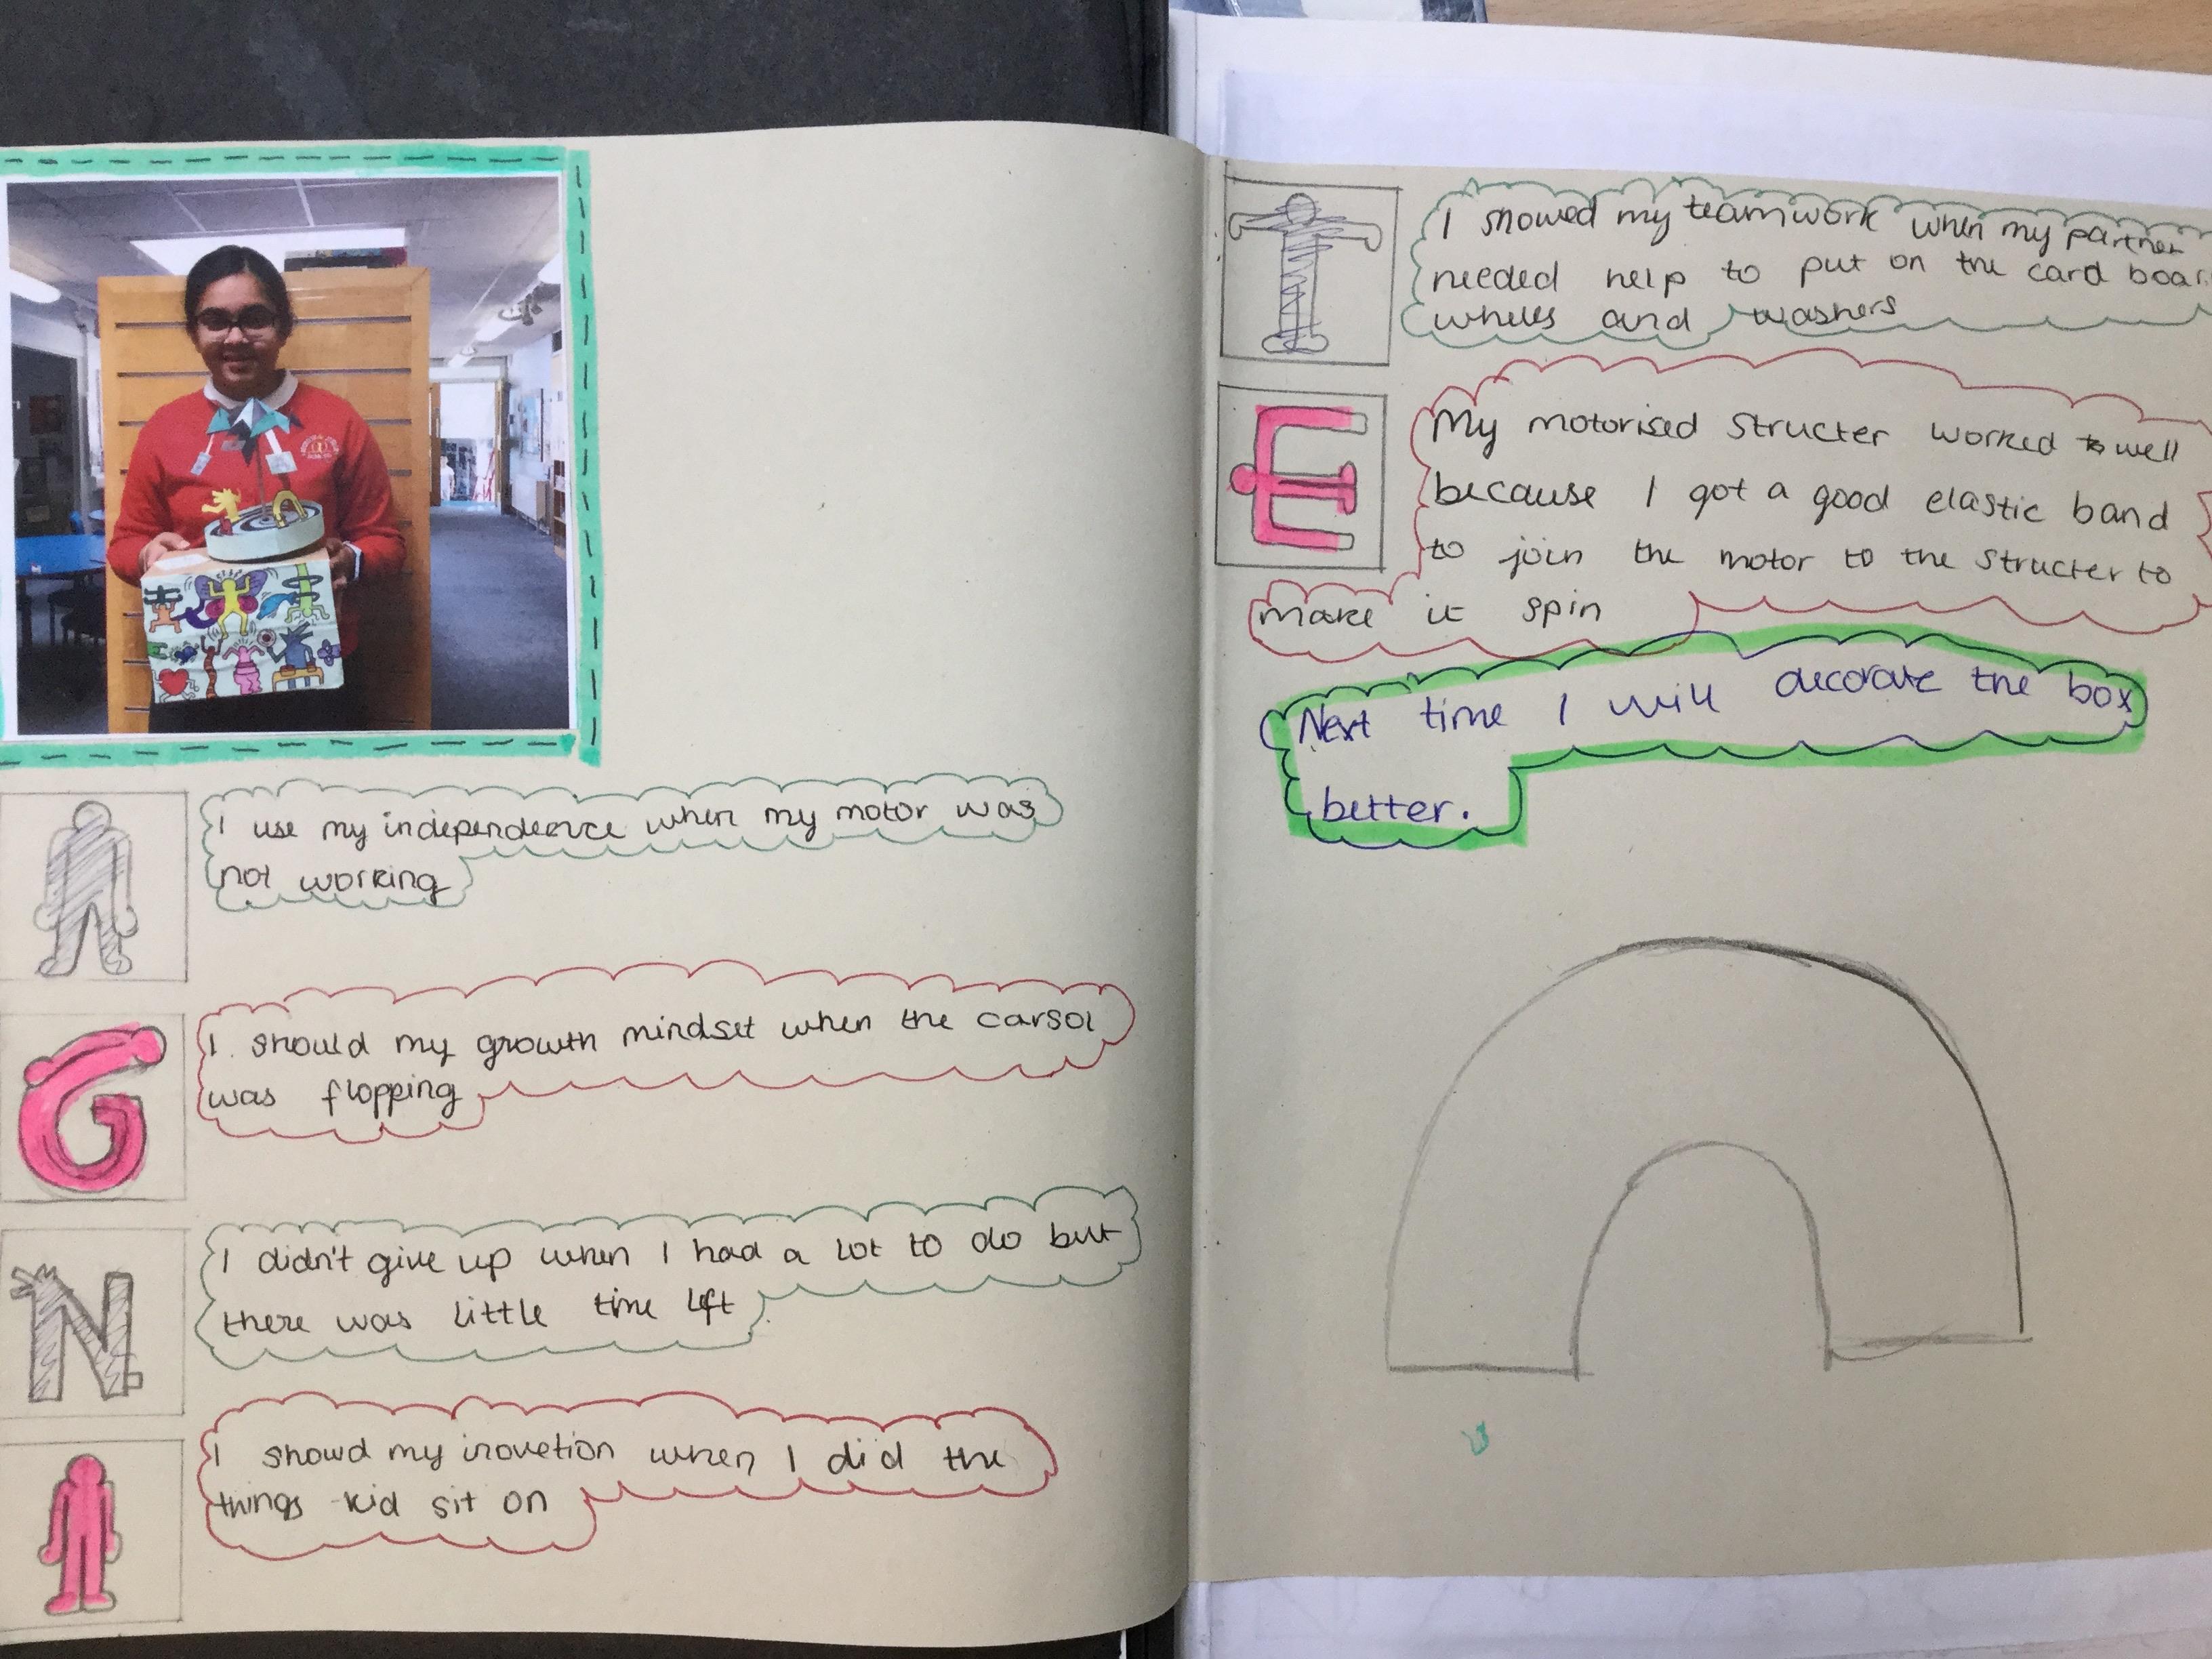 I use my independence when my motor was
not working
G
I should my growth mindset when the carsol
was flopping
N
I didn't give up when I had a lot to do but
there was little time left
I
I showd my inovetion when I did the
things kid sit on
T
I showed my teamwork when my partner
needed help to put on the card boar
wheles and washers
E
My motorised structer worked well
because I got a good elastic band
to join the motor to the structer to
make it spin
Next time I will decorate the box
better.